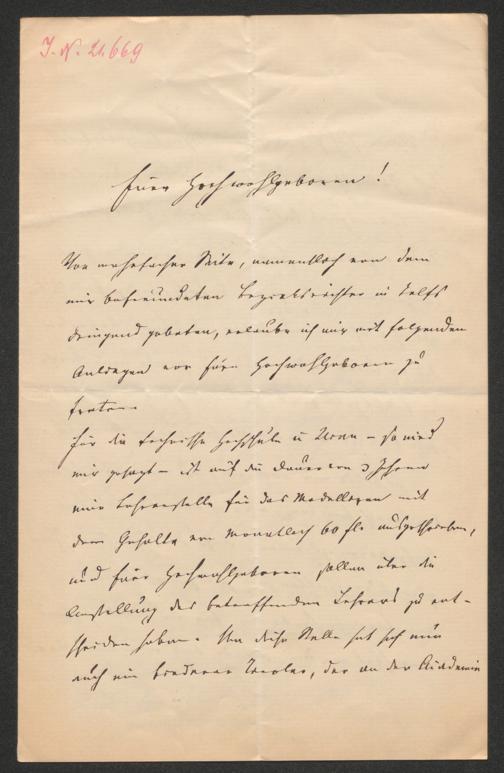 J. N. 21.669
Euer Hochwohlgeboren!
Von mehrfacher Seite, namentlich von dem
mir befreundeten Bezirksrichter in Telfs
dringend gebeten, erlaube ich mir mit folgenden
Anliegen vor Euer Hochwohlgeboren zu
treten.
Für die technische Hochschule in Wien – so wird
mir gesagt – ist auf die Dauer von 3 Jahren
eine Lehrerstelle für das Modellieren mit
dem Gehalte von monatlich 60 fl. ausgeschrieben,
und Euer Hochwohlgeboren sollen über die
Anstellung des betreffenden Lehrers zu ent-
scheiden haben. Um diese Stelle hat sich nun
auch ein Tiroler, der an der Akademie